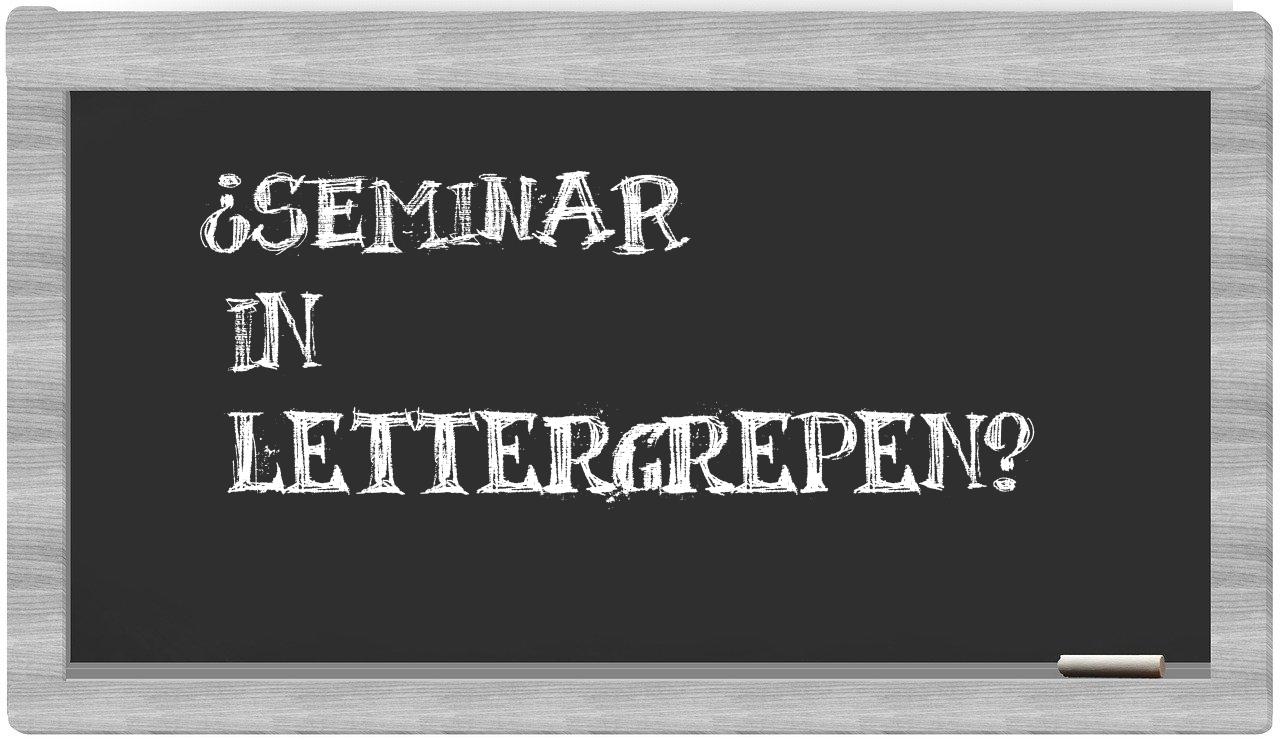 ¿SEMINAR
IN
LETTERGREPEN?